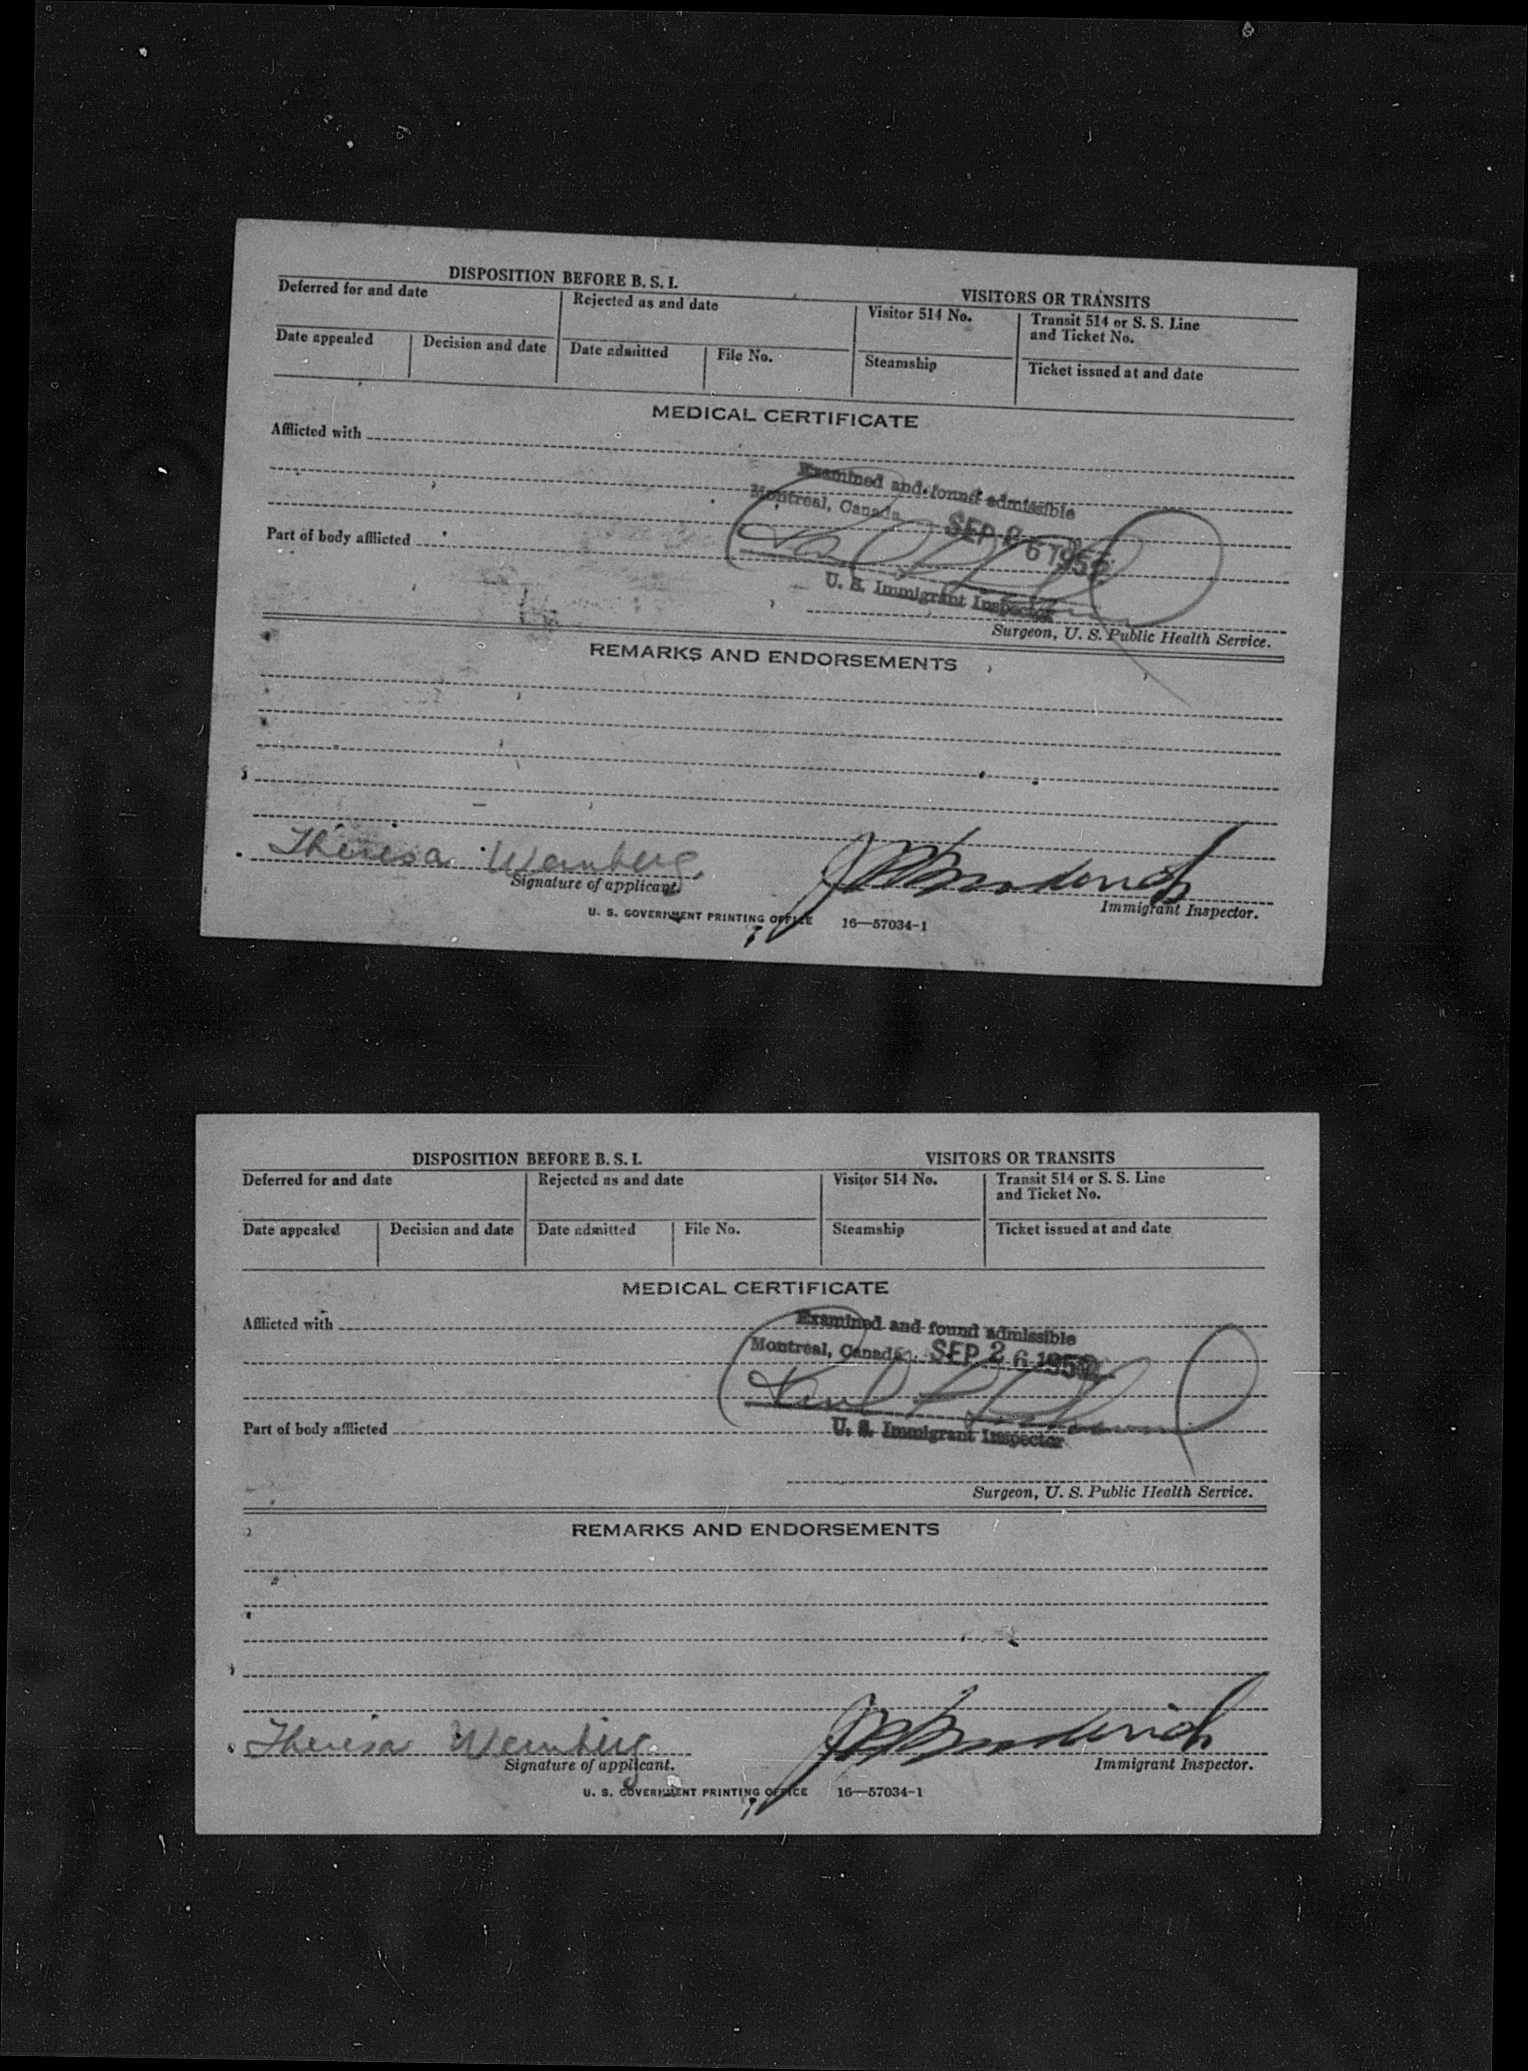 DISPOSITION BEFORE B. S. I.
VISITORS OR TRANSITS
Deferred for and date
Rejected as and date
Visitor 514 No.
Transit 514 or S. S. Line
and Ticket No.
Date appealed
Decision and date
Date admitted
File No.
Steamship
Ticket issued at and date
MEDICAL CERTIFICATE
Afflicted with
Examined and found admissible
Montreal, Canada SEP 26 195
Part of body afflicted
U. S. Immigrant Inspector
Surgeon, U. S. Public Health Service.
REMARKS AND ENDORSEMENTS
Theresa Weinberg
Signature of applicant.
Immigrant Inspector.
U. S. GOVERNMENT PRINTING OFFICE 16—57034-1
DISPOSITION BEFORE B. S. I.
VISITORS OR TRANSITS
Deferred for and date
Rejected as and date
Visitor 514 No.
Transit 514 or S. S. Line
and Ticket No.
Date appealed
Decision and date
Date admitted
File No.
Steamship
Ticket issued at and date
MEDICAL CERTIFICATE
Afflicted with
Examined and found admissible
Montreal, Canada SEP 26 195
Part of body afflicted
U. S. Immigrant Inspector
Surgeon, U. S. Public Health Service.
REMARKS AND ENDORSEMENTS
Theresa Weinberg
Signature of applicant.
Immigrant Inspector.
U. S. GOVERNMENT PRINTING OFFICE 16—57034-1